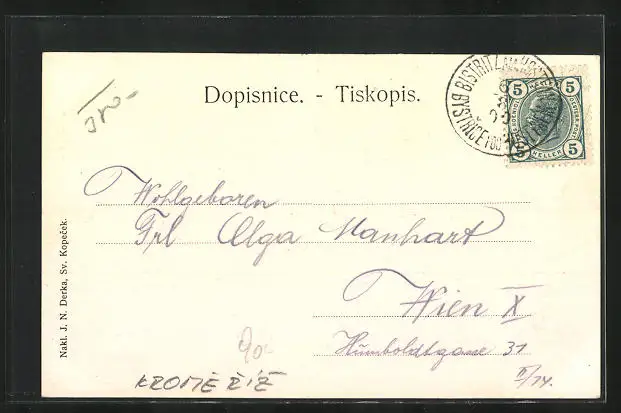 Dopisnice. - Tiskopis.
BISTRITZ AM HOSTEIN
BYSTŘICE POD
5 HELLER 5
5 HELLER 5
Wohlgeboren
Frl Olga Manhart
Wien X
Humboldtgasse 31
II/14.
90-
KROMĚŘÍŽ
Nakl. J. N. Derka, Sv. Kopeček.